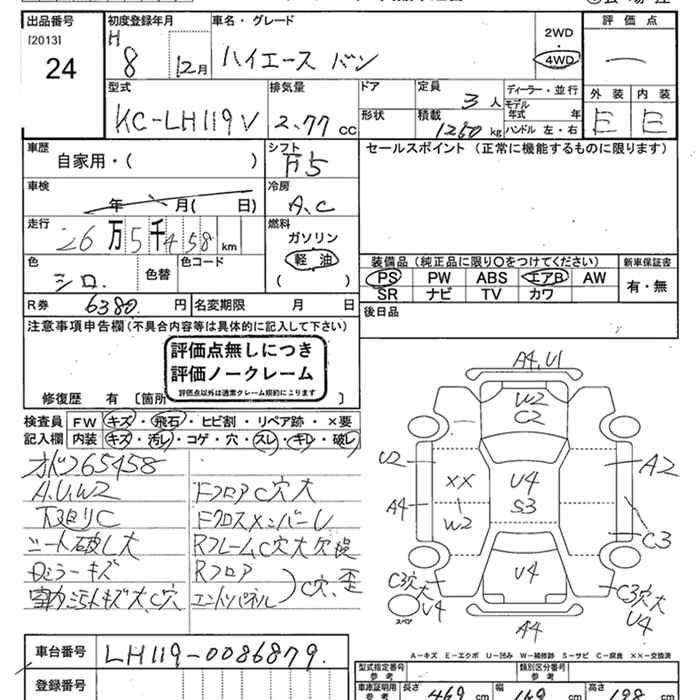 出品番号
[2013]
24
初度登録年月
H
8
12月
車名・グレード
ハイエース バン
2WD
4WD
評価点
型式
KC-LH119V
排気量
2.77 cc
ドア
形状
定員
3人
積載
1250 kg
ディーラー・並行
モデル
年式 年
ハンドル 左・右
外装
内装
E
E
車歴
自家用・( )
シフト
F5
セールスポイント (正常に機能するものに限ります)
車検
年 月( 日)
冷房
A.C
走行
26万5千458 km
燃料
ガソリン
軽油
( )
色
シロ
色替
色コード
装備品 (純正品に限り○をつけてください)
新車保証書
PS PW ABS エアB AW
SR ナビ TV カワ
有・無
R券
6380円
名変期限 月 日
後日品
注意事項申告欄(不具合内容等は具体的に記入して下さい)
評価点無しにつき
評価ノークレーム
評価点以外は通常クレーム規約によります
修復歴 有 [箇所
検査員
記入欄
FW キズ・飛石・ヒビ割・リペア跡・×要
内装 キズ・汚レ・コゲ・穴・スレ・キレ・破レ
65458
A.U.W2
下廻りC
シート破レ大
Dミラーキズ
キズ大、C穴
FフロアC穴大
Fクロスメンバーレ
RフレームC穴大欠損
Rフロア
エンドパネル
C穴、歪
A4,U1
W2
C2
U2
XX
U4
S3
A2
A4
W2
C3
U4
C3穴大
U4
スペア
A4
C3穴大
U4
A-キズ E-エクボ U-凹み W-補修跡 S-サビ C-腐食 XX-交換済
車台番号
LH119-0086879
登録番号
型式指定番号
参考
類別区分番号
参考
車庫証明用
参考
長さ 469 cm
幅 169 cm
高さ 198 cm